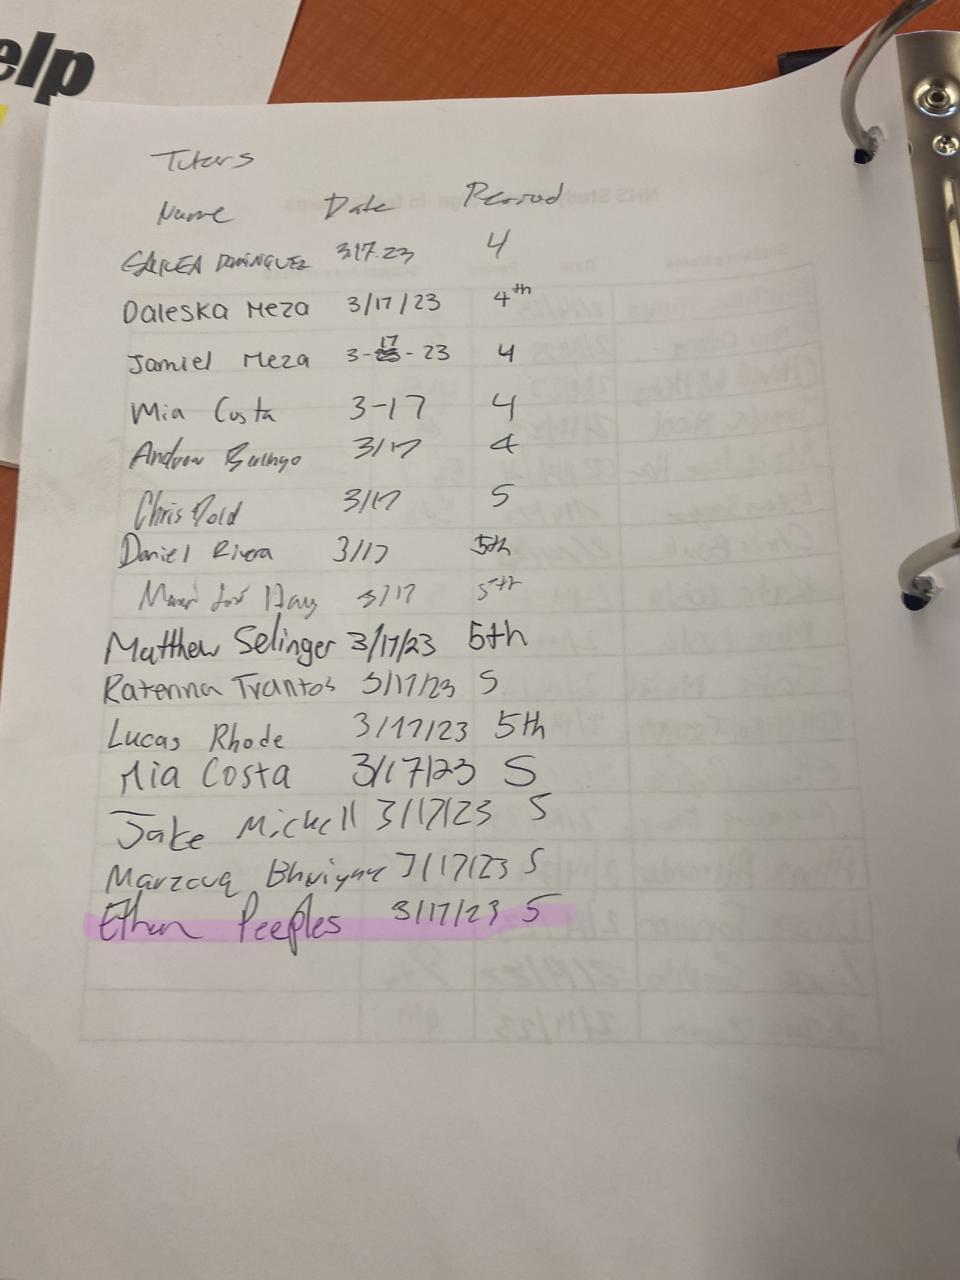 elp
Tutors
Name Date Period
DOMINGUEZ 3.17.23 4
Daleska Meza 3/17/23 4th
Jamiel Meza 3-17-23 4
Mia Costa 3-17 4
Andrew 3/17 4
Chris Dold 3/17 5
Daniel Rivera 3/17 5th
3/17 5th
Matthew Selinger 3/17/23 5th
Katerina Trantos 3/17/23 5
Lucas Rhode 3/17/23 5th
Mia Costa 3/17/23 5
Jake Mickell 3/17/23 5
Marzouq Bhuiyan 3/17/23 5
Ethan Peeples 3/17/23 5